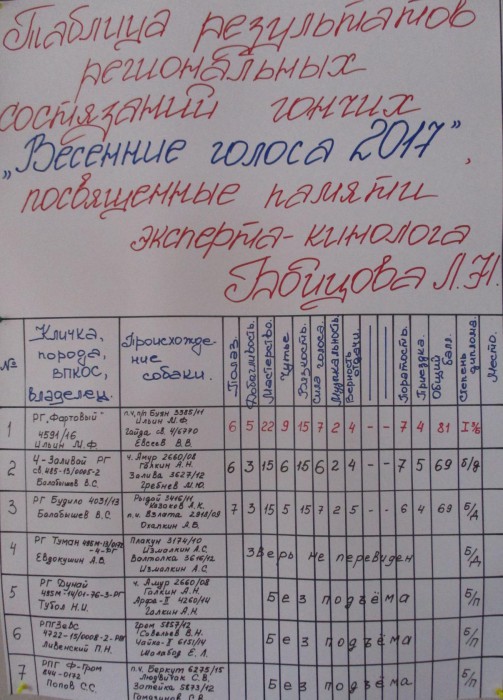 Таблица результатов
региональных
состязаний гончих
„Весенние голоса 2017",
посвященные памяти
эксперта-кинолога
Габицова Л.Н.
№ Кличка, порода, ВПКОС, владелец. Происхождение собаки. Полаз. Добычливость. Мастерство. Чутье. Вязкость. Сила голоса. Музыкальность. Верность отдачи. — — Паратость. Приездка. Общий балл. Степень диплома. Место.
1 РГ „Фартовый" 4591/16 Ильин М.Ф. п.ч. п/п Буян 3385/11 Ильин М.Ф. Гайда св. 4/6770 Евсеев В.В. 6 5 22 9 15 7 2 4 - - 7 4 81 I
2 Ч-Заливой РГ св. 485-15/0005-2 Балабышев В.С. ч. Амур 2660/08 Голкин А.Н. Залива 3627/12 Гребнев М.Ю. 6 3 15 6 15 6 2 4 - - 7 5 69 б/д
3 РГ Будило 4031/13 Балабышев В.С. Рыдай 3446/11 Казаков А.К. п.ч. Взлата 2818/09 Охалкин А.Б. 7 3 15 5 15 7 2 5 - - 6 4 69 б/д
4 РГ Туман Евдокушин А.В. Плакун 3174/10 Измалкин А.С. Болтолка 3616/12 Измалкин А.С. Зверь не перевиден б/д
5 РГ Дунай Тубол Н.И. ч. Амур 2660/08 Голкин А.Н. Арфа-II 4260/14 Голкин А.Н. Без подъёма б/п
6 РПГ Зевс 4722-15/0008-2-РПГ Ливенский П.Н. Грем 5857/12 Савельев В.Н. Чайка-II 6151/14 Шалабод Е.Л. Без подъёма б/п
7 РПГ Ф-Гром Попов С.С. п.ч. Беркут 6275/15 Людвичак С.В. Затейка 5873/12 Без подъёма б/п